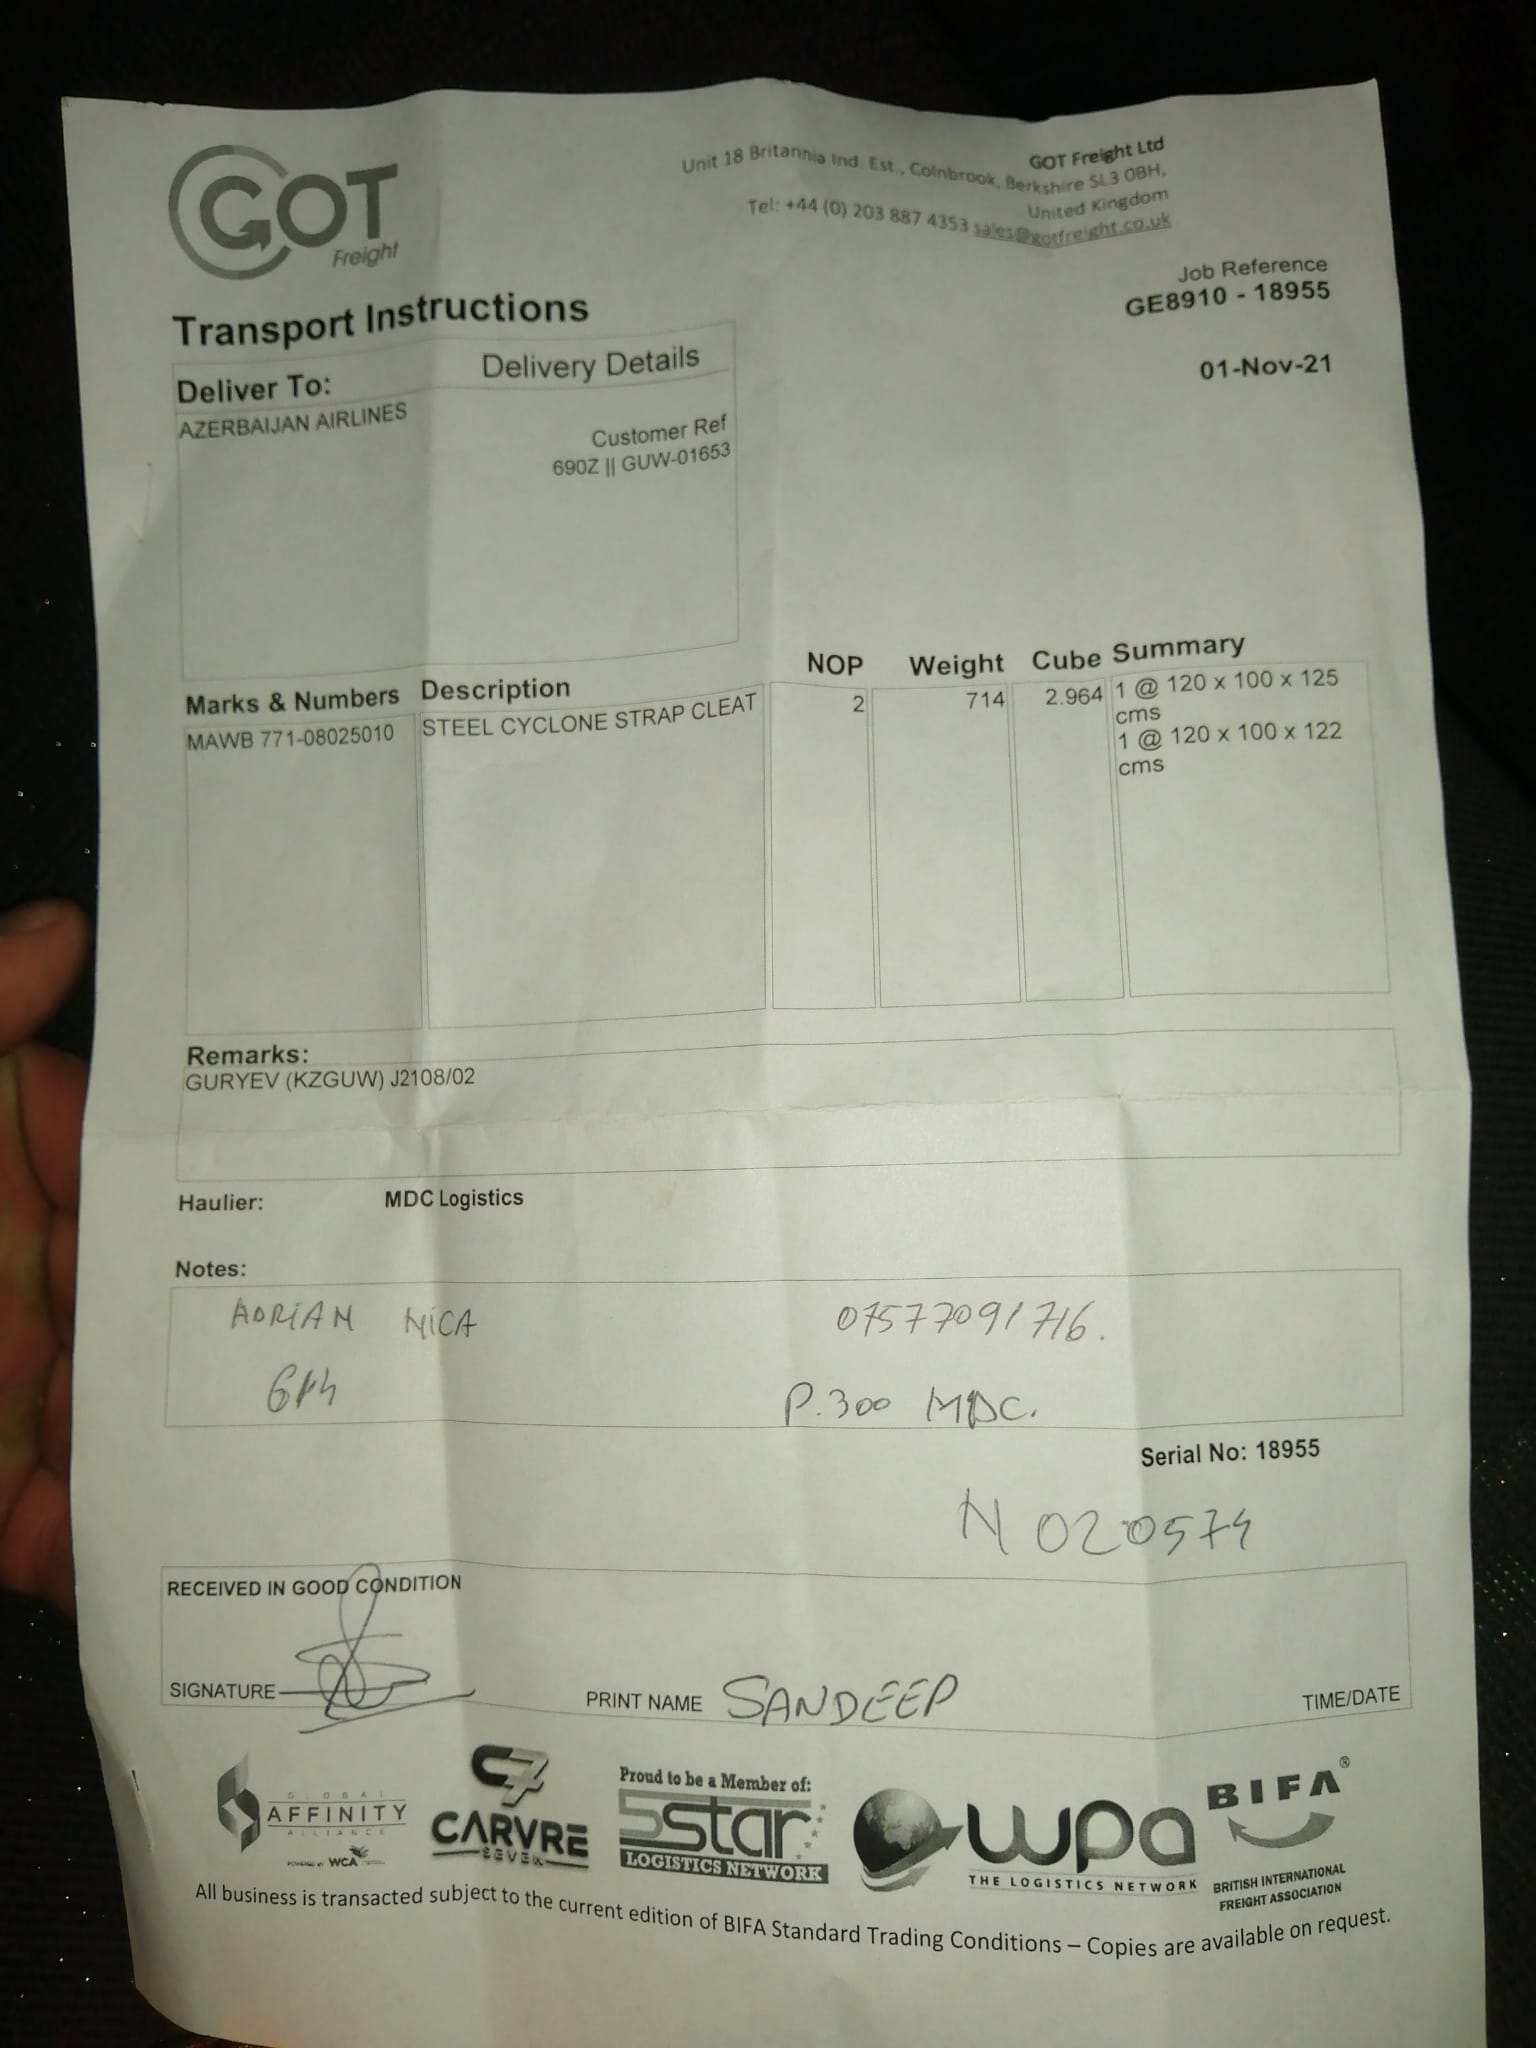 GOT
Freight
GOT Freight Ltd
Unit 18 Britannia Ind. Est., Colnbrook, Berkshire SL3 0BH,
United Kingdom
Tel: +44 (0) 203 887 4353 sales@gotfreight.co.uk
Job Reference
GE8910 - 18955
01-Nov-21
Transport Instructions
Deliver To: Delivery Details
AZERBAIJAN AIRLINES
Customer Ref
690Z || GUW-01653
Marks & Numbers Description NOP Weight Cube Summary
MAWB 771-08025010 STEEL CYCLONE STRAP CLEAT 2 714 2.964 1 @ 120 x 100 x 125
cms
1 @ 120 x 100 x 122
cms
Remarks:
GURYEV (KZGUW) J2108/02
Haulier: MDC Logistics
Notes:
ADRIAN NICA 07577091716.
P.300 MDC.
Serial No: 18955
N 020574
RECEIVED IN GOOD CONDITION
SIGNATURE PRINT NAME SANDEEP TIME/DATE
GLOBAL
AFFINITY
ALLIANCE
POWERED BY WCA
C7
CARVRE
SEVEN
Proud to be a Member of:
5star
LOGISTICS NETWORK
wpa
THE LOGISTICS NETWORK
BIFA®
BRITISH INTERNATIONAL
FREIGHT ASSOCIATION
All business is transacted subject to the current edition of BIFA Standard Trading Conditions – Copies are available on request.